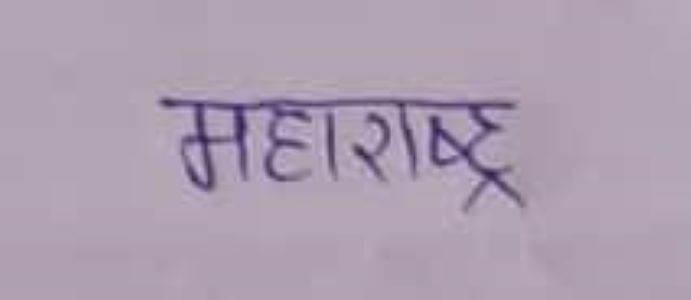 महाराष्ट्र